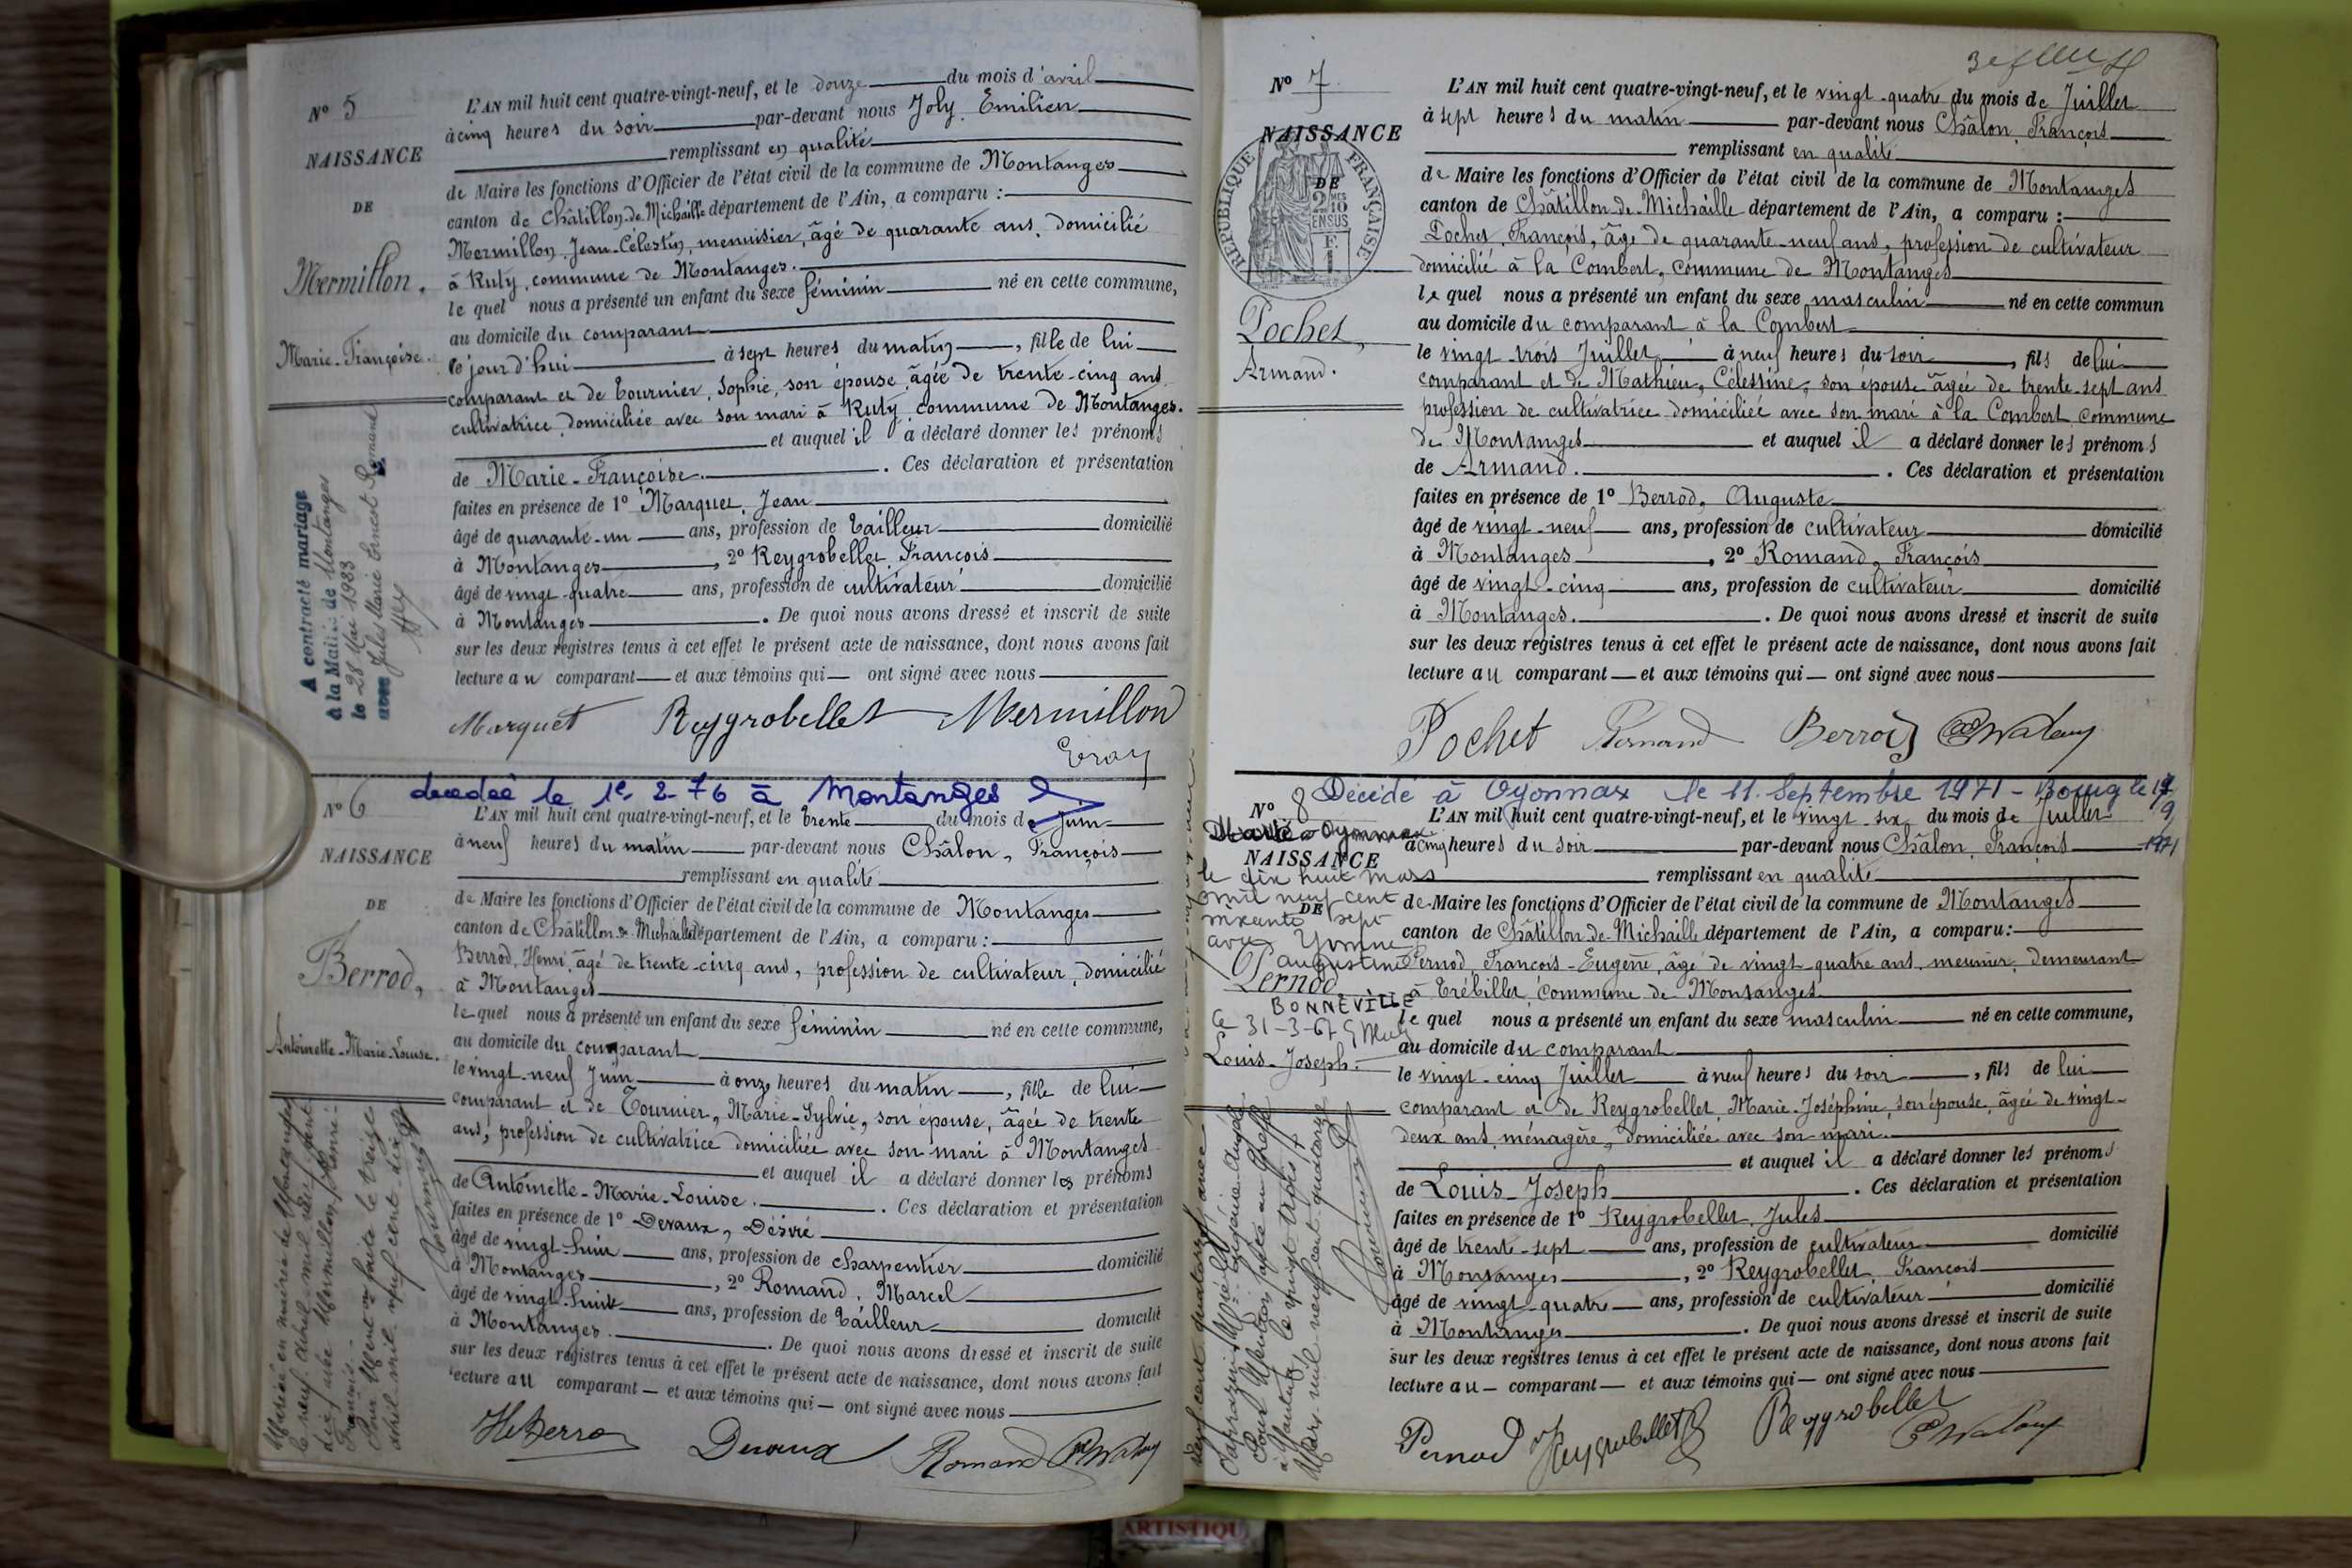 N° 5
NAISSANCE
DE
Mermillon,
Marie-Françoise.
A contracté mariage
à la Mairie de Montanges
le 28 Mai 1983
avec Jules Marie Ernest Romand
L'AN mil huit cent quatre-vingt-neuf, et le douze du mois d'avril
à cinq heures du soir par-devant nous Joly, Emilien
remplissant en qualité
de Maire les fonctions d'Officier de l'état civil de la commune de Montanges
canton de Châtillon-de-Michaille département de l'Ain, a comparu :
Mermillon, Jean-Célestin, menuisier, âgé de quarante ans, domicilié
à Ruty, commune de Montanges.
le quel nous a présenté un enfant du sexe féminin né en cette commune,
au domicile du comparant
le jour d'hui à sept heures du matin, fille de lui
comparant et de Tournier, Sophie, son épouse, âgée de trente-cinq ans
cultivatrice, domiciliée avec son mari à Ruty, commune de Montanges.
et auquel il a déclaré donner les prénoms
de Marie-Françoise. Ces déclaration et présentation
faites en présence de 1° Marquet, Jean
âgé de quarante-un ans, profession de tailleur domicilié
à Montanges, 2° Reygrobellet, François
âgé de vingt-quatre ans, profession de cultivateur domicilié
à Montanges. De quoi nous avons dressé et inscrit de suite
sur les deux registres tenus à cet effet le présent acte de naissance, dont nous avons fait
lecture au comparant et aux témoins qui ont signé avec nous
Marquet Reygrobellet Mermillon
N° 6
décédée le 1er 2-76 à Montanges
NAISSANCE
DE
Berrod,
Antoinette-Marie-Louise.
Mariée en mairie de Montanges
le neuf avril mil neuf cent
dix avec Mermillon, Henri
François.
avril mil neuf cent dix
L'AN mil huit cent quatre-vingt-neuf, et le trente du mois de Juin
à neuf heures du matin par-devant nous Châlon, François
remplissant en qualité
de Maire les fonctions d'Officier de l'état civil de la commune de Montanges
canton de Châtillon-de-Michaille département de l'Ain, a comparu :
Berrod, Henri, âgé de trente-cinq ans, profession de cultivateur, domicilié
à Montanges
le quel nous a présenté un enfant du sexe féminin né en cette commune,
au domicile du comparant
le vingt-neuf Juin à onze heures du matin, fille de lui
comparant et de Tournier, Marie-Sylvie, son épouse, âgée de trente
ans, profession de cultivatrice domiciliée avec son mari à Montanges
et auquel il a déclaré donner les prénoms
de Antoinette-Marie-Louise. Ces déclaration et présentation
faites en présence de 1° Devaux, Désiré
âgé de vingt-huit ans, profession de charpentier domicilié
à Montanges, 2° Romand, Marcel
âgé de vingt-huit ans, profession de tailleur domicilié
à Montanges. De quoi nous avons dressé et inscrit de suite
sur les deux registres tenus à cet effet le présent acte de naissance, dont nous avons fait
lecture au comparant et aux témoins qui ont signé avec nous
Devaux Romand
N° 7
NAISSANCE
DE
RÉPUBLIQUE FRANÇAISE
Pochet,
Armand.
L'AN mil huit cent quatre-vingt-neuf, et le vingt-quatre du mois de Juillet
à sept heures du matin par-devant nous Châlon, François
remplissant en qualité
de Maire les fonctions d'Officier de l'état civil de la commune de Montanges
canton de Châtillon-de-Michaille département de l'Ain, a comparu :
Pochet, François, âgé de quarante-neuf ans, profession de cultivateur
domicilié à la Combert, commune de Montanges
le quel nous a présenté un enfant du sexe masculin né en cette commun
au domicile du comparant à la Combert
le vingt-trois Juillet à neuf heures du soir, fils de lui
comparant et de Mathieu, Célestine, son épouse âgée de trente-sept ans
profession de cultivatrice domiciliée avec son mari à la Combert commune
de Montanges et auquel il a déclaré donner les prénoms
de Armand. Ces déclaration et présentation
faites en présence de 1° Berrod, Auguste
âgé de vingt-neuf ans, profession de cultivateur domicilié
à Montanges, 2° Romand, François
âgé de vingt-cinq ans, profession de cultivateur domicilié
à Montanges. De quoi nous avons dressé et inscrit de suite
sur les deux registres tenus à cet effet le présent acte de naissance, dont nous avons fait
lecture au comparant et aux témoins qui ont signé avec nous
Pochet Romand Berrod
N° 8
Décédé à Oyonnax le 11 Septembre 1971 - Bourg le 17
9
1971
Marié à Oyonnax
NAISSANCE
le dix huit mars
mil neuf cent
DE
trente sept
avec Yvonne
Augustine
Pernod
BONNEVILLE
Le 31-3-67
Louis-Joseph.
L'AN mil huit cent quatre-vingt-neuf, et le vingt-six du mois de Juillet
à cinq heures du soir par-devant nous Châlon, François
remplissant en qualité
de Maire les fonctions d'Officier de l'état civil de la commune de Montanges
canton de Châtillon-de-Michaille département de l'Ain, a comparu :
Pernod, François-Eugène, âgé de vingt-quatre ans, meunier, demeurant
à Trébillet, commune de Montanges
le quel nous a présenté un enfant du sexe masculin né en cette commune,
au domicile du comparant
le vingt-cinq Juillet à neuf heures du soir, fils de lui
comparant et de Reygrobellet, Marie-Joséphine, son épouse, âgée de vingt-
deux ans, ménagère, domiciliée avec son mari.
et auquel il a déclaré donner les prénoms
de Louis-Joseph. Ces déclaration et présentation
faites en présence de 1° Reygrobellet, Jules
âgé de trente-sept ans, profession de cultivateur domicilié
à Montanges, 2° Reygrobellet, François
âgé de vingt-quatre ans, profession de cultivateur domicilié
à Montanges. De quoi nous avons dressé et inscrit de suite
sur les deux registres tenus à cet effet le présent acte de naissance, dont nous avons fait
lecture au comparant et aux témoins qui ont signé avec nous
Pernod Reygrobellet Reygrobellet
ARTISTIQU